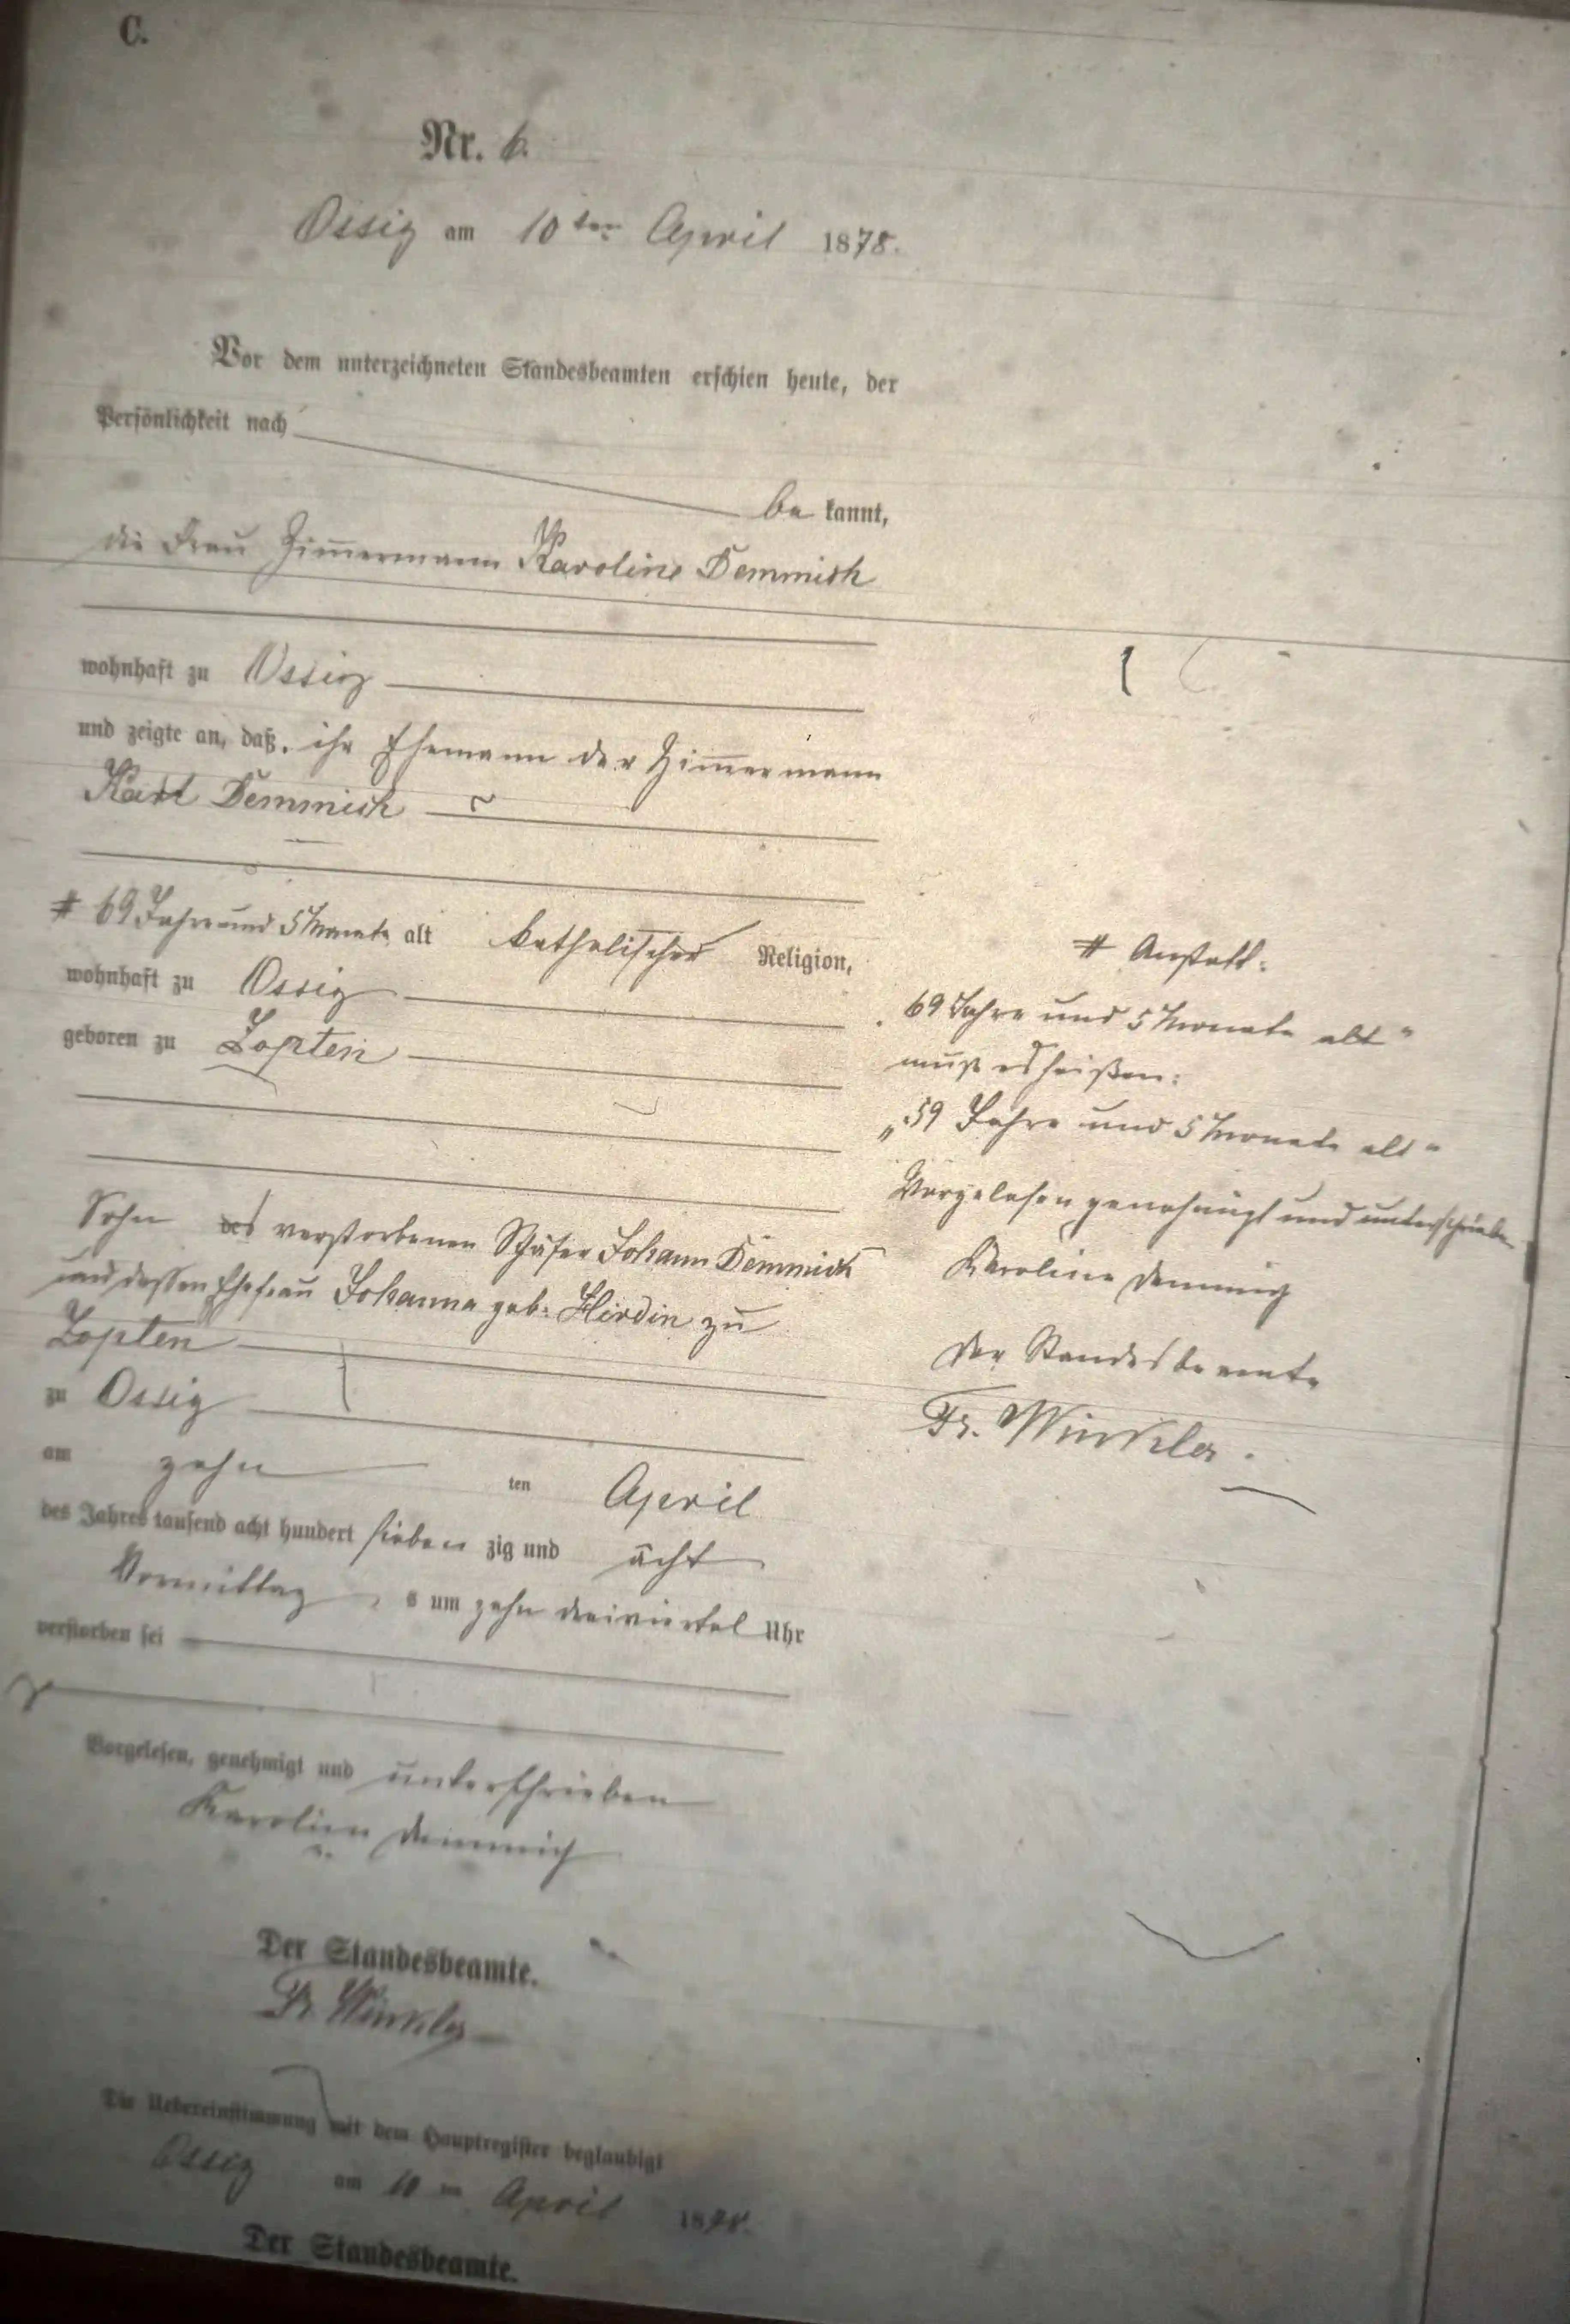 C.
Nr. 6.
Ossig am 10ten April 1878.
Vor dem unterzeichneten Standesbeamten erschien heute, der
Persönlichkeit nach
be kannt,
die Frau Zimmermann Karoline Demmich
wohnhaft zu Ossig
und zeigte an, daß ihr Ehemann der Zimmermann
Karl Demmich
# 69 Jahre und 5 Monate alt katholischer Religion,
wohnhaft zu Ossig
geboren zu Zopten
Sohn des verstorbenen Schäfer Johann Demmich
und dessen Ehefrau Johanna geb: zu
Zopten
zu Ossig
am zehn ten April
des Jahres tausend acht hundert sieben zig und acht
Vormittag s um zehn dreiviertel Uhr
verstorben sei
Vorgelesen, genehmigt und unterschrieben
Karolin Demmich
Der Standesbeamte.
Fr. Winkler
Die Uebereinstimmung mit dem Hauptregister beglaubigt
Ossig am 10ten April 1878.
Der Standesbeamte.
# Anstatt:
„69 Jahre und 5 Monate alt"
muß es heißen:
„59 Jahre und 5 Monate alt"
Vorgelesen genehmigt und unterschrieben
Karoline Demmig
Der Standesbeamte
Fr. Winkler.